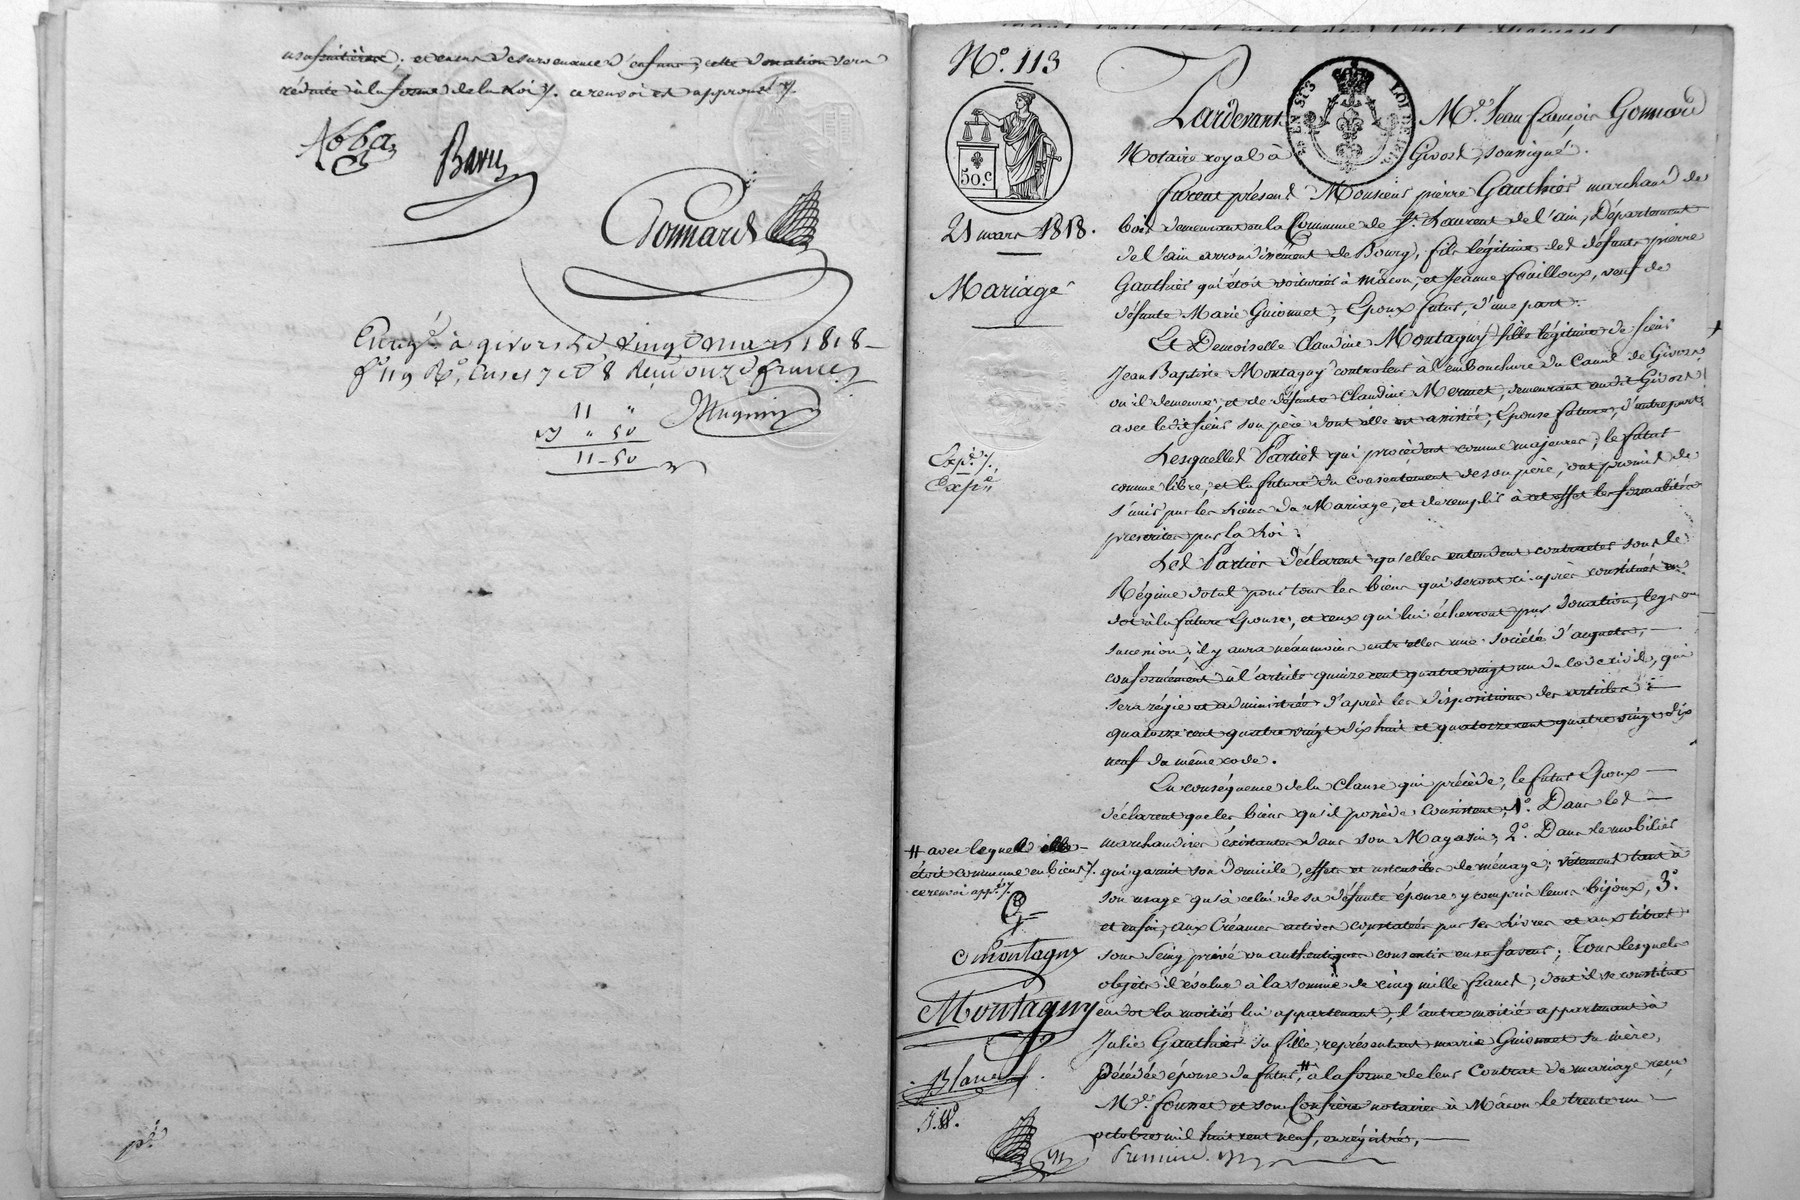 usufruitière; et en cas de survenance d'enfans, cette donation sera
réduite à la forme de la Loi ./. ce renvoi est approuvé ./.
Gonnard
Enreg.é à givors le vingt mars 1818 —
f.o 119 R.o, Cases 7 et 8 Reçu onze francs
11 "
" 50
11 – 50
N.o 113
50.c
21 mars 1818.
Mariage
Exp.é ./.
Exp.on
Pardevant M.e Jean françois Gonnard
Notaire royal à Givors, soussigné.
furent présent Monsieur pierre Gauthier marchand de
bois demeurant en la Commune de S.t Laurent de l'ain, Département
de l'ain arrondissement de Bourg, fils légitime des défunts pierre
Gauthier qui étoit voiturier à Mâcon, et Jeanne fouilloux, veuf de
défunte Marie Guionnet, Epoux futur, d'une part.
Et Demoiselle Claudine Montagny fille légitime de Sieur
Jean Baptiste Montagny controleur à l'embouchure du Canal de Givors
où il demeure, et de défunte Claudine Mermet, demeurant audit Givors
avec ledit sieur son père dont elle est assistée, Epouse future, d'autre part.
Lesquelles Parties qui procèdent comme majeures, le futur
comme libre, et la future du Consentement de son père, ont promis de
s'unir par les Liens du Mariage, et de remplir à cet effet les formalités
prescrites par la Loi.
Les Parties déclarent qu'elles entendent contracter sous le
Régime dotal pour tous les biens qui seront ci-après constitués en
dot à la future Epouse, et ceux qui lui écherront par donation, legs ou
succession; il y aura néanmoins entr'elles une société d'acquets, —
conformément à l'article quinze cent quatre vingt un du Code civil, qui
sera régie et administrée d'après les dispositions des articles —
quatorze cent quatre vingt dix huit et quatorze cent quatre vingt dix
neuf du même code.
En conséquence de la Clause qui précède, le futur Epoux —
déclarent que les biens qu'il possède Consistent, 1.o Dans les —
marchandises éxistantes dans son Magasin; 2.o Dans le mobilier
qui garnit son Domicile, effets et ustensiles de ménage, vêtement tant à
son usage qu'à celui de sa défunte épouse y compris leurs bijoux, 3.o
et enfin, aux Créances actives constatées par ses Livres et aux titres
sous Seing privé ou authentiques consentis en sa faveur; Tous lesquels
objets il évalue à la somme de cinq mille francs, dont il se constitue
en dot la moitiés lui appartenant, l'autre moitié appartenant à
Julie Gauthier sa fille, représentant marie Guionnet sa mère,
Décédée épouse du futur, # à la forme de leur Contrat de mariage reçu
M.e fournet et son Confrère notaires à Mâcon le trente un —
octobre mil huit cent neuf, enregistrés, —
# avec laquelle elle –
étoit commune en biens ./.
ce renvoi app.é ./.
C montagny
Montagny
Blanc
Première.